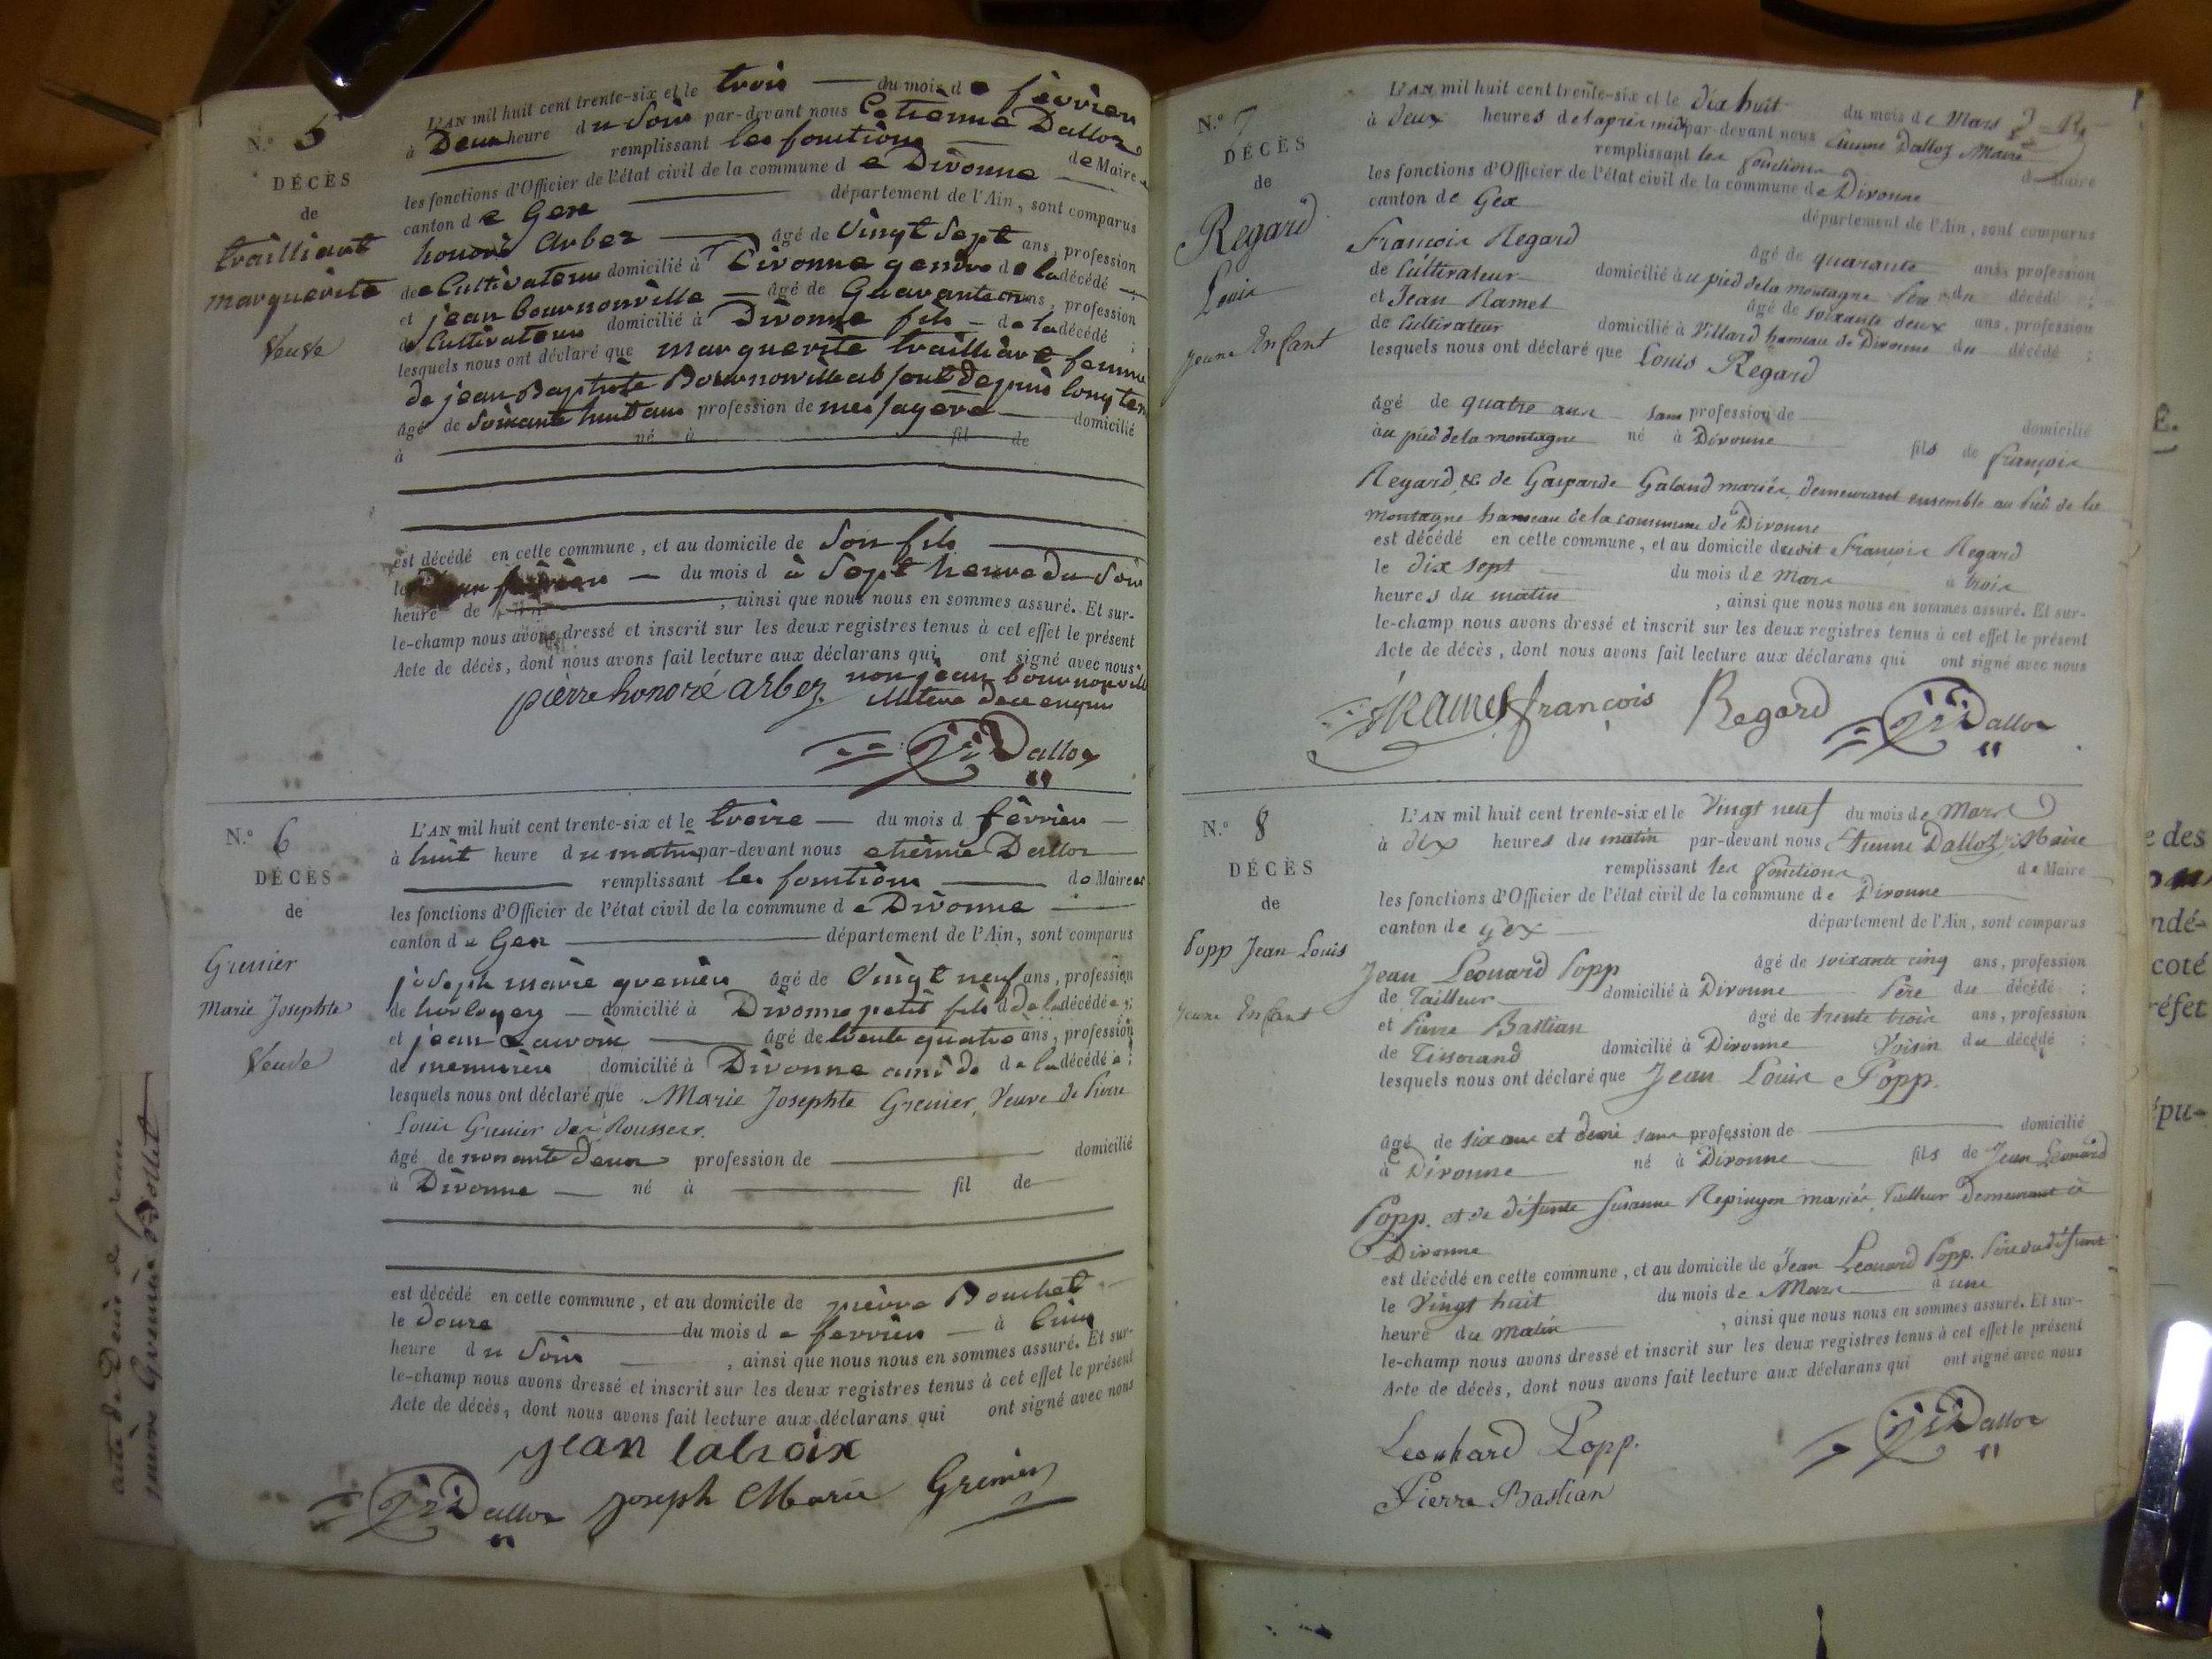 N.º 5
DÉCÈS
de
trailliart
marguerite
Veuve
L'AN mil huit cent trente-six et le trois du mois de février
à Deux heure du Soir par-devant nous Etienne Dalloz
remplissant les fonctions de Maire
les fonctions d'Officier de l'état civil de la commune de Divonne
canton de Gex département de l'Ain, sont comparus
honoré Arbez âgé de Vingt Sept ans, profession
de Cultivateur domicilié à Divonne gendre de la décédé ;
et jean bournonville âgé de Quarante ans, profession
de Cultivateur domicilié à Divonne fils de la décédé ;
lesquels nous ont déclaré que marguerite trailliart femme
de jean Baptiste Bournonville absent depuis long tem
âgé de Soixante huit ans profession de messagère domicilié
à né à fil de
est décédé en cette commune, et au domicile de Son fils
le février du mois d à Sept heure du Soir
heure de , ainsi que nous nous en sommes assuré. Et sur-
le-champ nous avons dressé et inscrit sur les deux registres tenus à cet effet le présent
Acte de décès, dont nous avons fait lecture aux déclarans qui ont signé avec nous
non jean bournonville
pièrre honoré arbez
Dalloz
N.º 6
DÉCÈS
de
Grenier
Marie Josephte
Veuve
L'AN mil huit cent trente-six et le treize du mois d février
à huit heure du matin par-devant nous etienne Dalloz
remplissant les fonctions de Maire
les fonctions d'Officier de l'état civil de la commune de Divonne
canton de Gex département de l'Ain, sont comparus
joseph marie grenier âgé de Vingt neuf ans, profession
de horloger domicilié à Divonne petit fils de la décédée ;
et jean Lacroix âgé de trente quatre ans, profession
de menuisier domicilié à Divonne ami de de la décédée ;
lesquels nous ont déclaré que Marie Josephte Grenier, Veuve de Pierre
Louis Grenier des Rousses.
âgé de nonante deux profession de domicilié
à Divonne né à fil de
est décédé en cette commune, et au domicile de pièrre Bouchet
le douze du mois de fevrier à Cinq
heure du Soir , ainsi que nous nous en sommes assuré. Et sur-
le-champ nous avons dressé et inscrit sur les deux registres tenus à cet effet le présent
Acte de décès, dont nous avons fait lecture aux déclarans qui ont signé avec nous
jean lacroix
Dalloz joseph Marie Grenier
N.º 7
DÉCÈS
de
Regard
Louis
jeune Enfant
L'AN mil huit cent trente-six et le dix huit du mois de Mars
à deux heures de l'après midi par-devant nous Etienne Dalloz Maire
remplissant les fonctions de Maire
les fonctions d'Officier de l'état civil de la commune de Divonne
canton de Gex département de l'Ain, sont comparus
François Regard âgé de quarante ans, profession
de Cultivateur domicilié au pied de la montagne Père du décédé ;
et Jean Ramel âgé de soixante deux ans, profession
de Cultivateur domicilié à Villard hameau de Divonne du décédé ;
lesquels nous ont déclaré que Louis Regard
âgé de quatre ans sans profession de domicilié
au pied de la montagne né à Divonne fils de françois
Regard & de Gasparde Galand mariés, demeurant ensemble au Pied de la
montagne hameau de la commune de Divonne
est décédé en cette commune, et au domicile dudit François Regard
le dix sept du mois de mars à trois
heures du matin , ainsi que nous nous en sommes assuré. Et sur-
le-champ nous avons dressé et inscrit sur les deux registres tenus à cet effet le présent
Acte de décès, dont nous avons fait lecture aux déclarans qui ont signé avec nous
Ramel françois Regard Dalloz
N.º 8
DÉCÈS
de
Popp Jean Louis
Jeune Enfant
L'AN mil huit cent trente-six et le Vingt neuf du mois de Mars
à dix heures du matin par-devant nous Etienne Dalloz Maire
remplissant les fonctions de Maire
les fonctions d'Officier de l'état civil de la commune de Divonne
canton de gex département de l'Ain, sont comparus
Jean Leonard Popp âgé de soixante cinq ans, profession
de Tailleur domicilié à Divonne Père du décédé ;
et Pierre Bastian âgé de trente trois ans, profession
de Tisserand domicilié à Divonne Voisin du décédé ;
lesquels nous ont déclaré que Jean Louis Popp.
âgé de six ans et demi sans profession de domicilié
à Divonne né à Divonne fils de Jean Leonard
Popp. et de défunte Susanne mariés, Tailleur demeurant à
Divonne
est décédé en cette commune, et au domicile de Jean Leonard Popp. Père du défunt
le Vingt huit du mois de Mars à une
heure du matin , ainsi que nous nous en sommes assuré. Et sur-
le-champ nous avons dressé et inscrit sur les deux registres tenus à cet effet le présent
Acte de décès, dont nous avons fait lecture aux déclarans qui ont signé avec nous
Leonhard Popp. Dalloz
Pierre Bastian